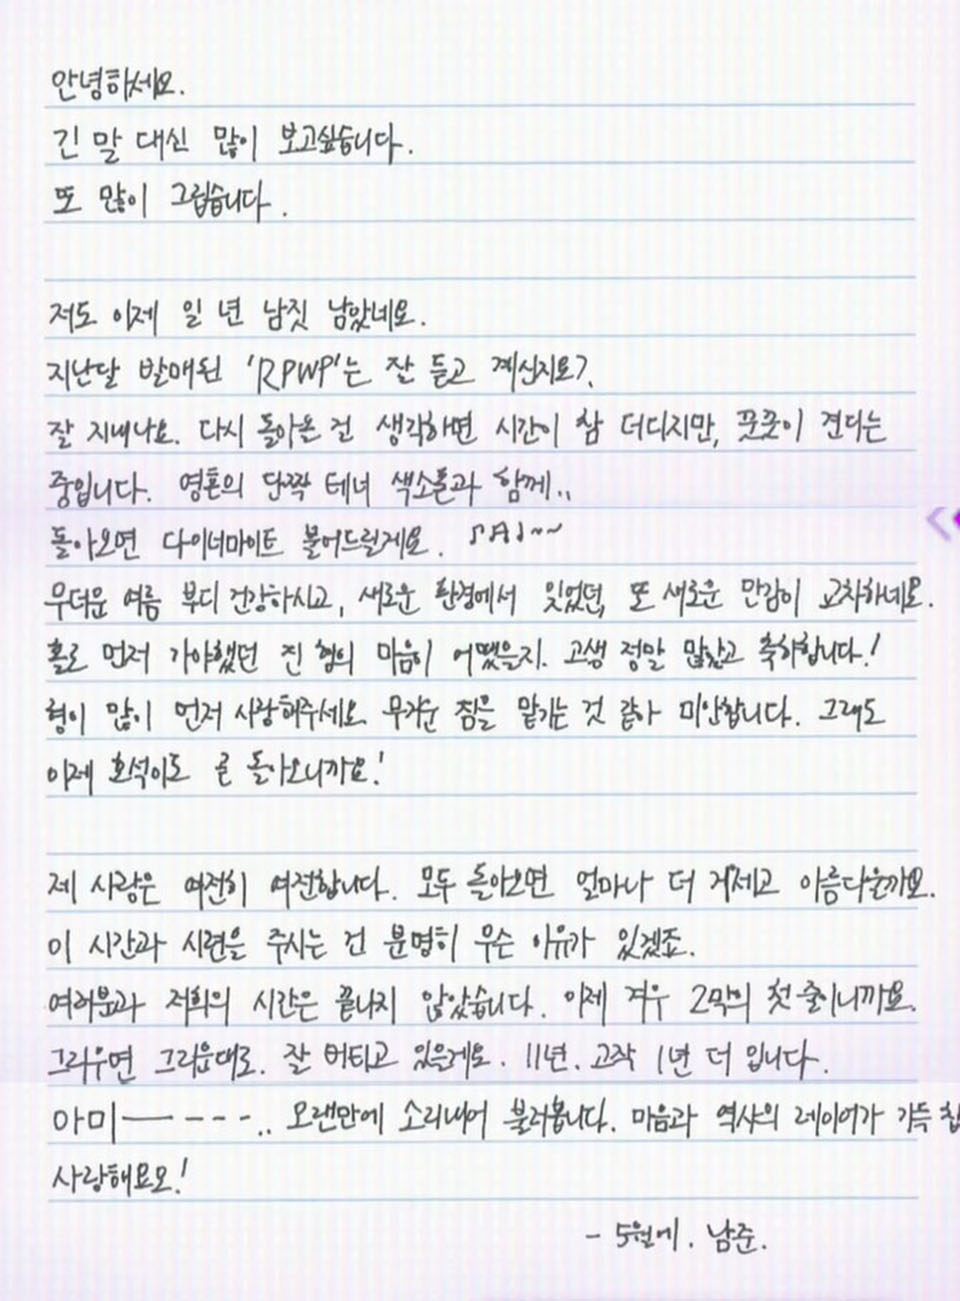 안녕하세요.
긴 말 대신 많이 보고싶습니다.
또 많이 그립습니다.
저도 이제 일 년 남짓 남았네요.
지난달 발매된 'RPWP'는 잘 듣고 계신지요?
잘 지내나요. 다시 돌아온 건 생각하면 시간이 참 더디지만, 꿋꿋이 견디는
중입니다. 영혼의 단짝 테너 색소폰과 함께..
돌아오면 다이너마이트 불어드릴게요. ♪♫♩~~
무더운 여름 부디 건강하시고, 새로운 환경에서 잊었던, 또 새로운 만감이 교차하네요.
홀로 먼저 가야했던 진 형의 마음이 어땠을지. 고생 정말 많았고 축하합니다!
형이 많이 먼저 사랑해주세요. 무거운 짐을 맡기는 것 같아 미안합니다. 그래도
이제 호석이도 곧 돌아오니까요!
제 사랑은 여전히 여전합니다. 모두 돌아오면 얼마나 더 거세고 아름다울까요.
이 시간과 시련을 주시는 건 분명히 무슨 이유가 있겠죠.
여러분과 저희의 시간은 끝나지 않았습니다. 이제 겨우 2막의 첫 줄이니까요.
그리우면 그리운대로. 잘 버티고 있을게요. 11년. 고작 1년 더 입니다.
아미ㅡㅡ---.. 오랜만에 소리내어 불러봅니다. 마음과 역사의 레이어가 가득
사랑해요오!
- 5월에. 남준.